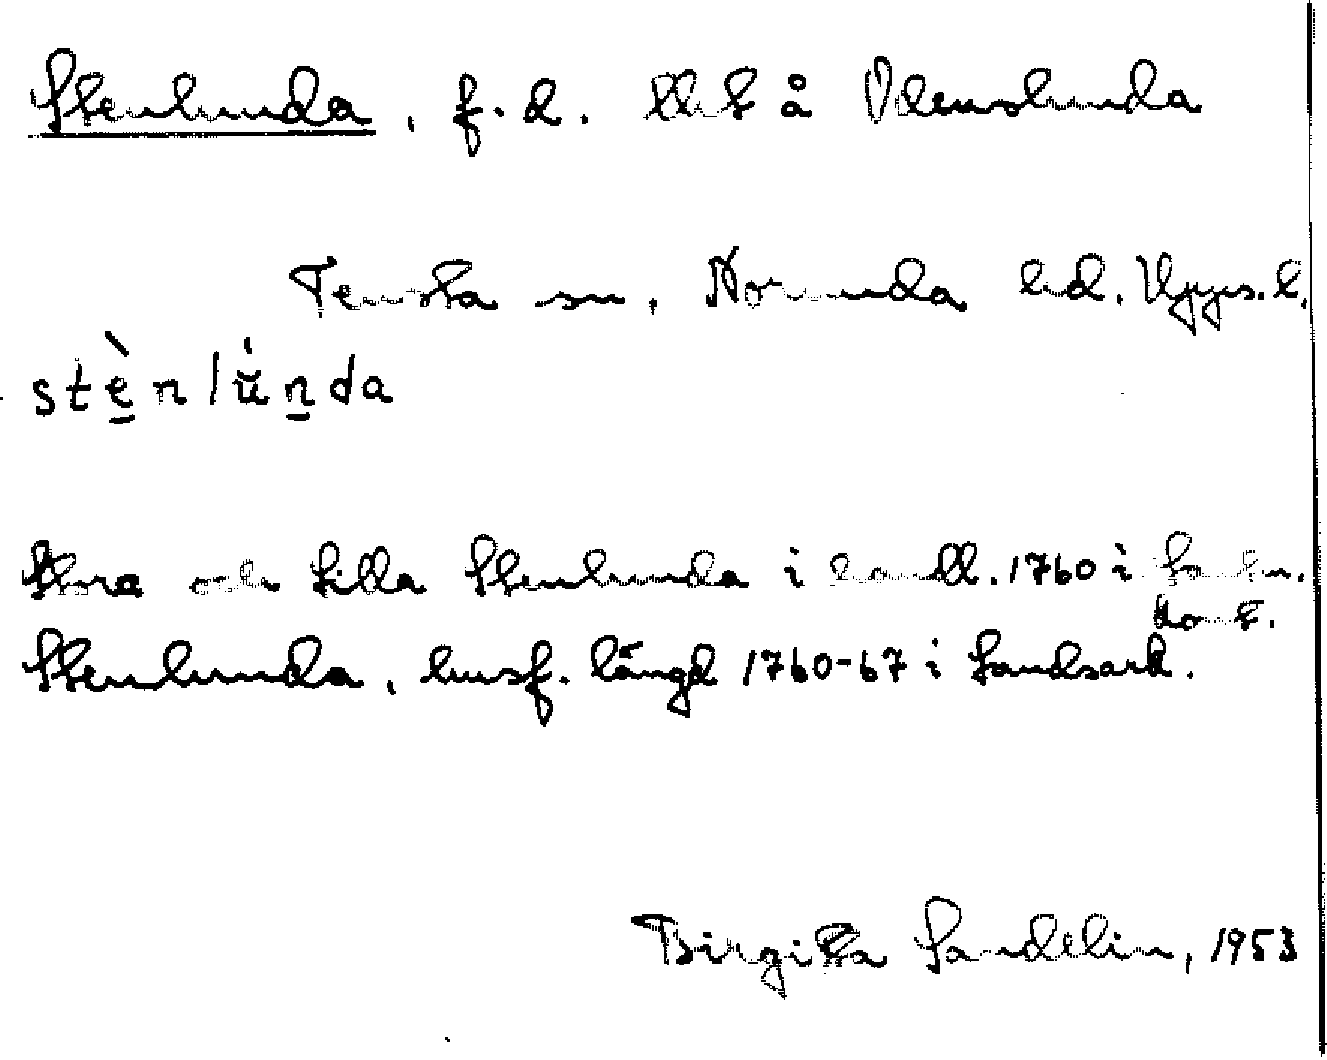 Stenlunda, f.d. lht å Ödenslunda
Tensta sn, Norunda hd. Upps.l.
stè̱nlŭ̀ṉda
Stora och Lilla Stenlunda i handl. 1760 i Lantm.
kont.
Stenlunda, husf. längd 1760-67 i Landsark.
Birgitta Sandelin, 1953